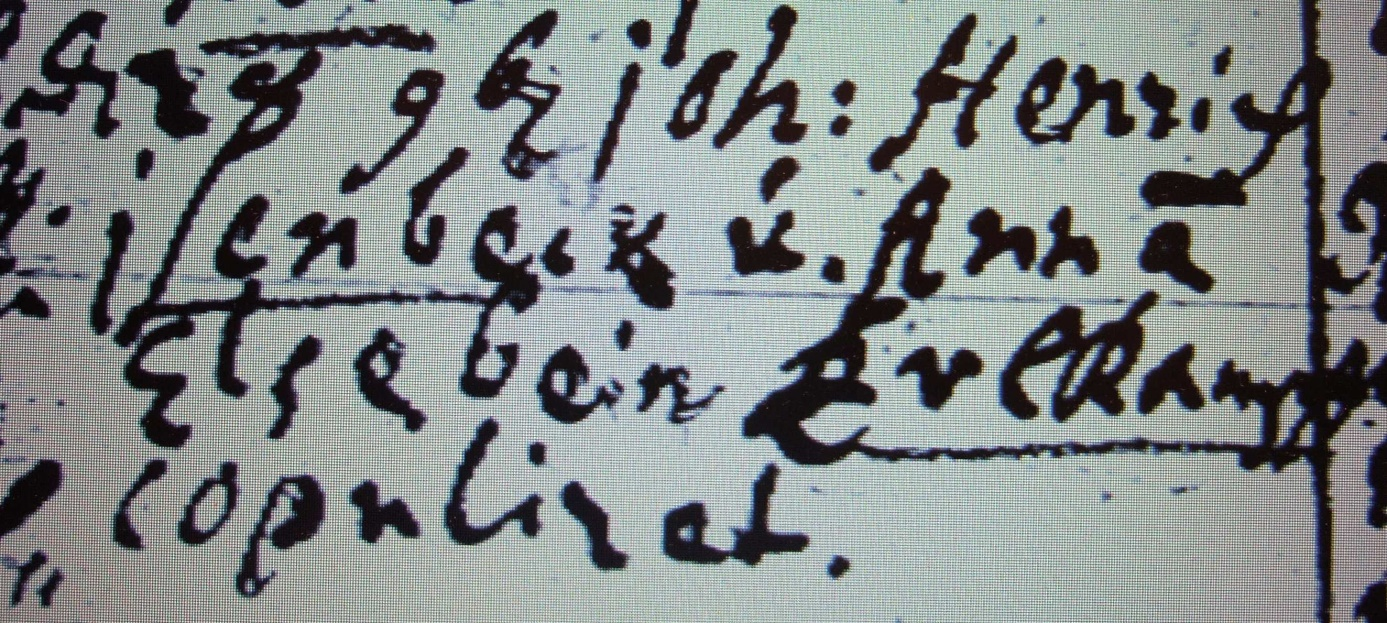 Joh: Henrich
Isenbeck u. Anna
Elsebein Everkamp
copuliret.